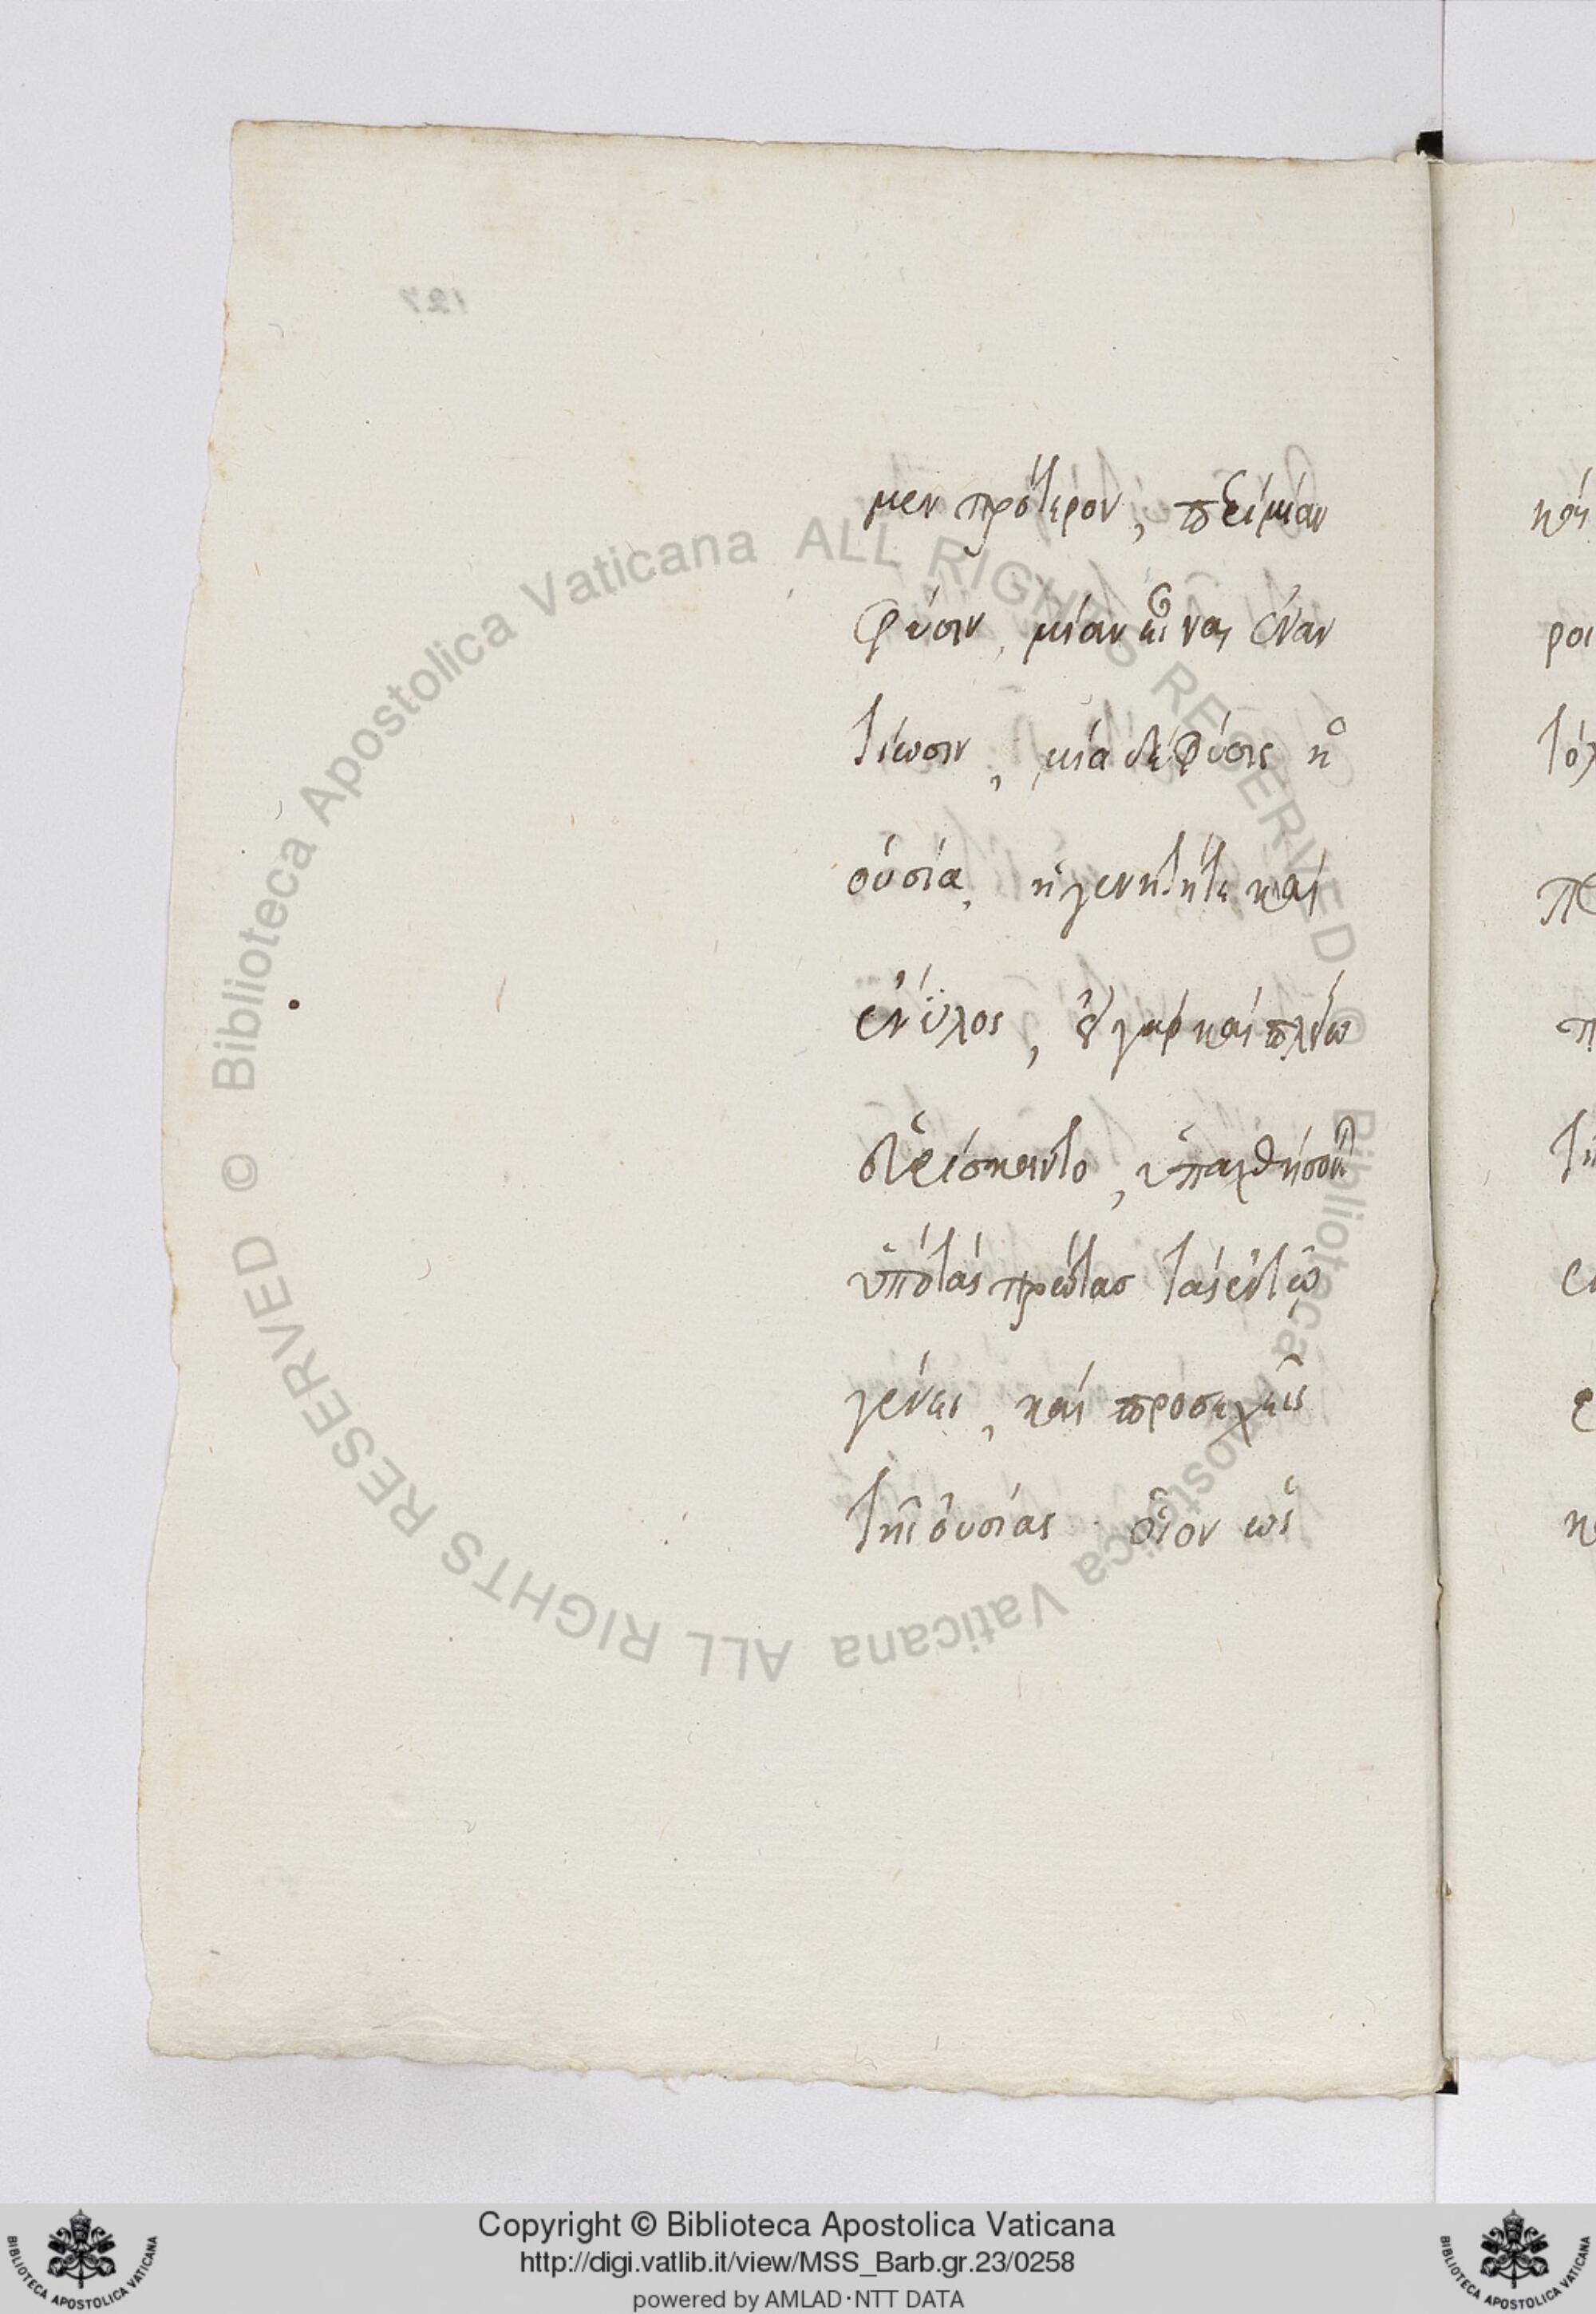 127
μεν πρότερον, περὶ μίαν
φύσιν, μίαν εἶναι ἐναν
τίωσιν, μία δὲ φύσις ἡ
οὐσία, ἡ γενητή τε καὶ
ἔνϋλος, εἰ γὰρ καὶ πλείω
εὑρίσκοιντο, ὑπαχθήσονται
ὑπὸ τὰς πρώτας τὰς ἐν τῷ
γένει, καὶ προσεχεῖς
τῆς οὐσίας. οἷον ὡς
© Biblioteca Apostolica Vaticana ALL RIGHTS RESERVED © Biblioteca Apostolica Vaticana ALL RIGHTS RESERVED
Copyright © Biblioteca Apostolica Vaticana
http://digi.vatlib.it/view/MSS_Barb.gr.23/0258
powered by AMLAD·NTT DATA
BIBLIOTECA APOSTOLICA VATICANA
BIBLIOTECA APOSTOLICA VATICANA